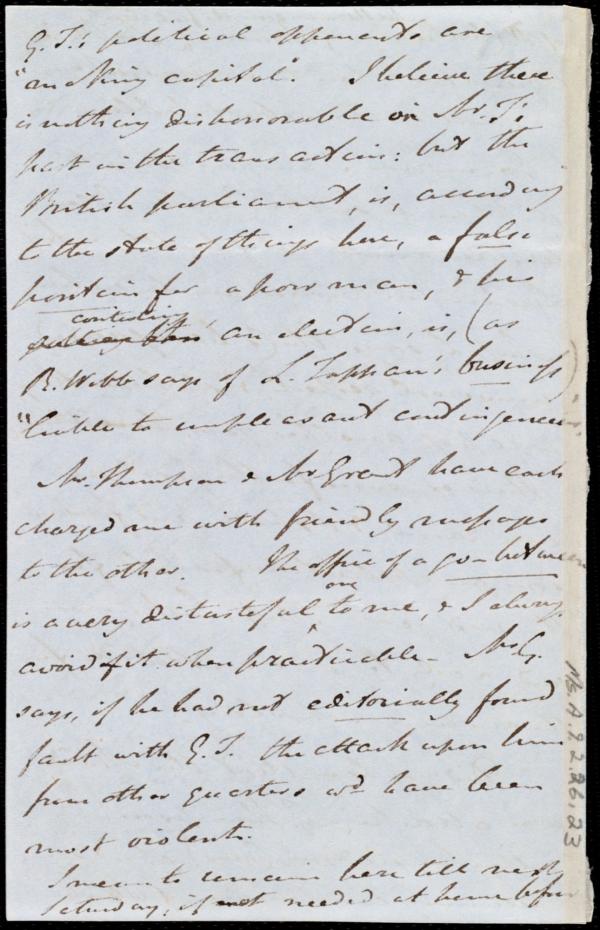 G. T.'s political opponents are
"making capital". I believe there
is nothing dishonorable on Mr. T.'s
part in the transaction: but the
British parliament, is, according
to the state of things here, a false
position for a poor man, & his
contesting
an election, is, (as
R. Webb says of L. Tappan's business)
"liable to unpleasant contingencies".
Mr. Thompson & Mr Grant have each
charged me with friendly messages
to the other. The office of a go-between
one
is a very distasteful to me, & I always
avoid it when practicable - Mr G.
says, if he had not editorially found
fault with G. T. the attack upon him
from other quarters wd have been
most violent.
I mean to remain here till next
Saturday, if not needed at home before
MS. A. 9. 2. 26. 23